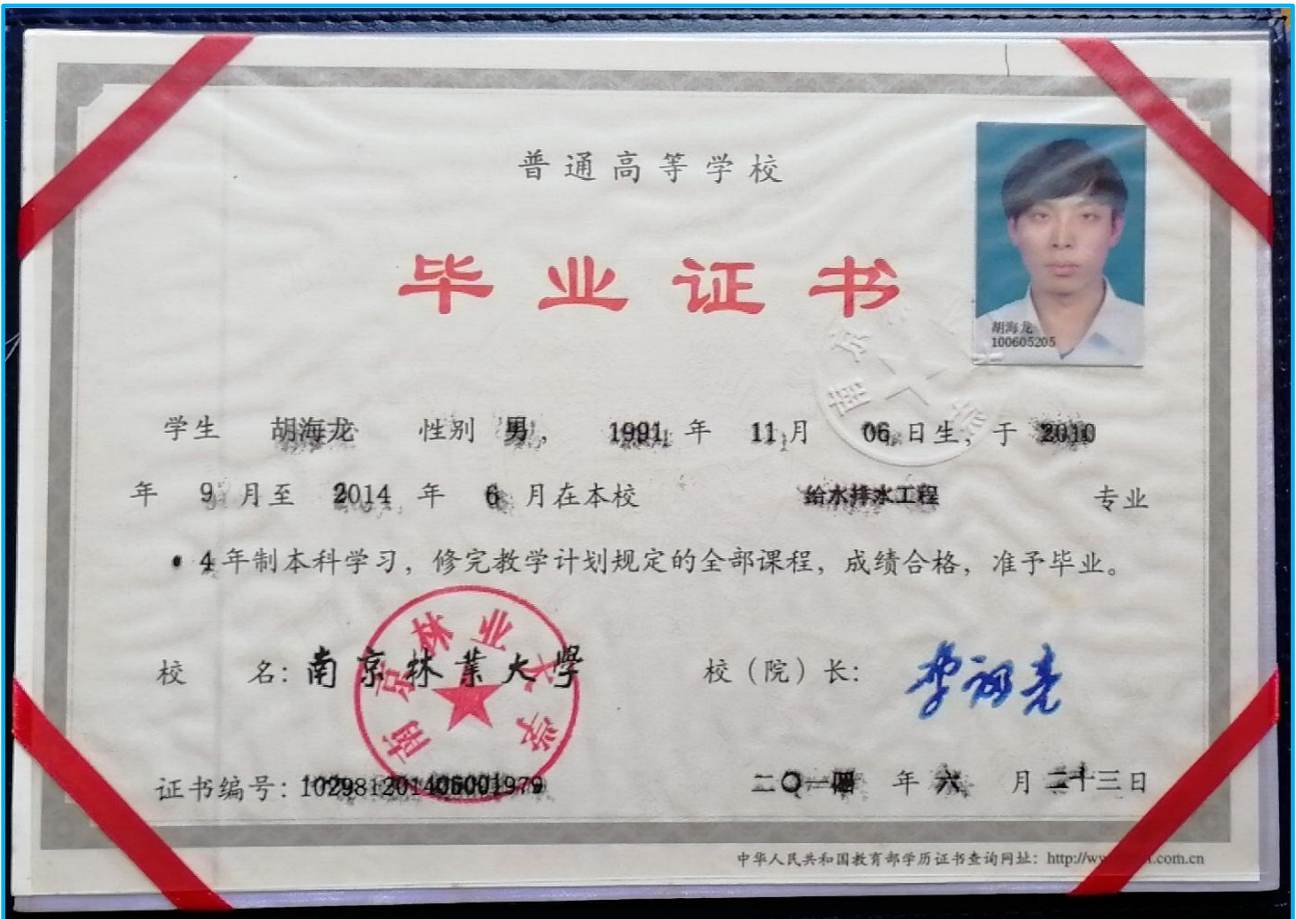 普通高等学校
毕业证书
胡海龙
100605205
学生 胡海龙 性别 男, 1991 年 11月 06日生, 于 2010
年 9 月至 2014 年 6 月在本校 给水排水工程 专业
4年制本科学习, 修完教学计划规定的全部课程, 成绩合格, 准予毕业。
校 名: 南京林业大學
南京林业大学
校(院)长:
证书编号: 102981201406001979
二〇一四 年 六 月 二十三日
中华人民共和国教育部学历证书查询网址: http://ww
.com.cn